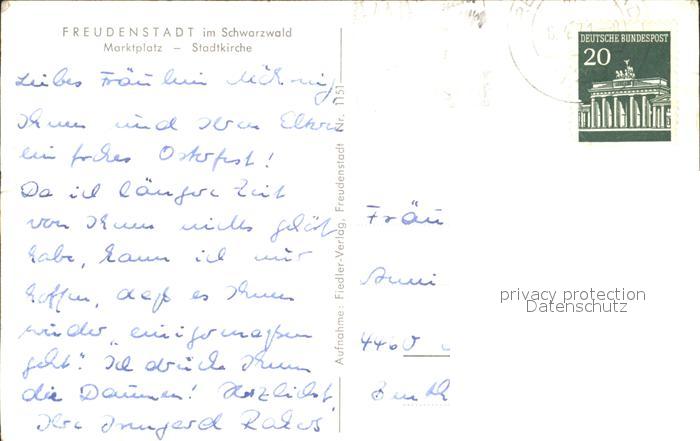 FREUDENSTADT im Schwarzwald
Marktplatz – Stadtkirche
Liebes Fräulein
Ihnen und Ihren Eltern
ein frohes Osterfest!
Da ich längere Zeit
von Ihnen nichts gehört
habe, kann ich nur
hoffen, daß es Ihnen
wieder „einigermaßen
geht". Ich drücke Ihnen
die Daumen! Herzlichst
Ihre Irmgard
Aufnahme: Fiedler-Verlag, Freudenstadt Nr. 1151
DEUTSCHE BUNDESPOST
20
Fräu
Anni
privacy protection
Datenschutz